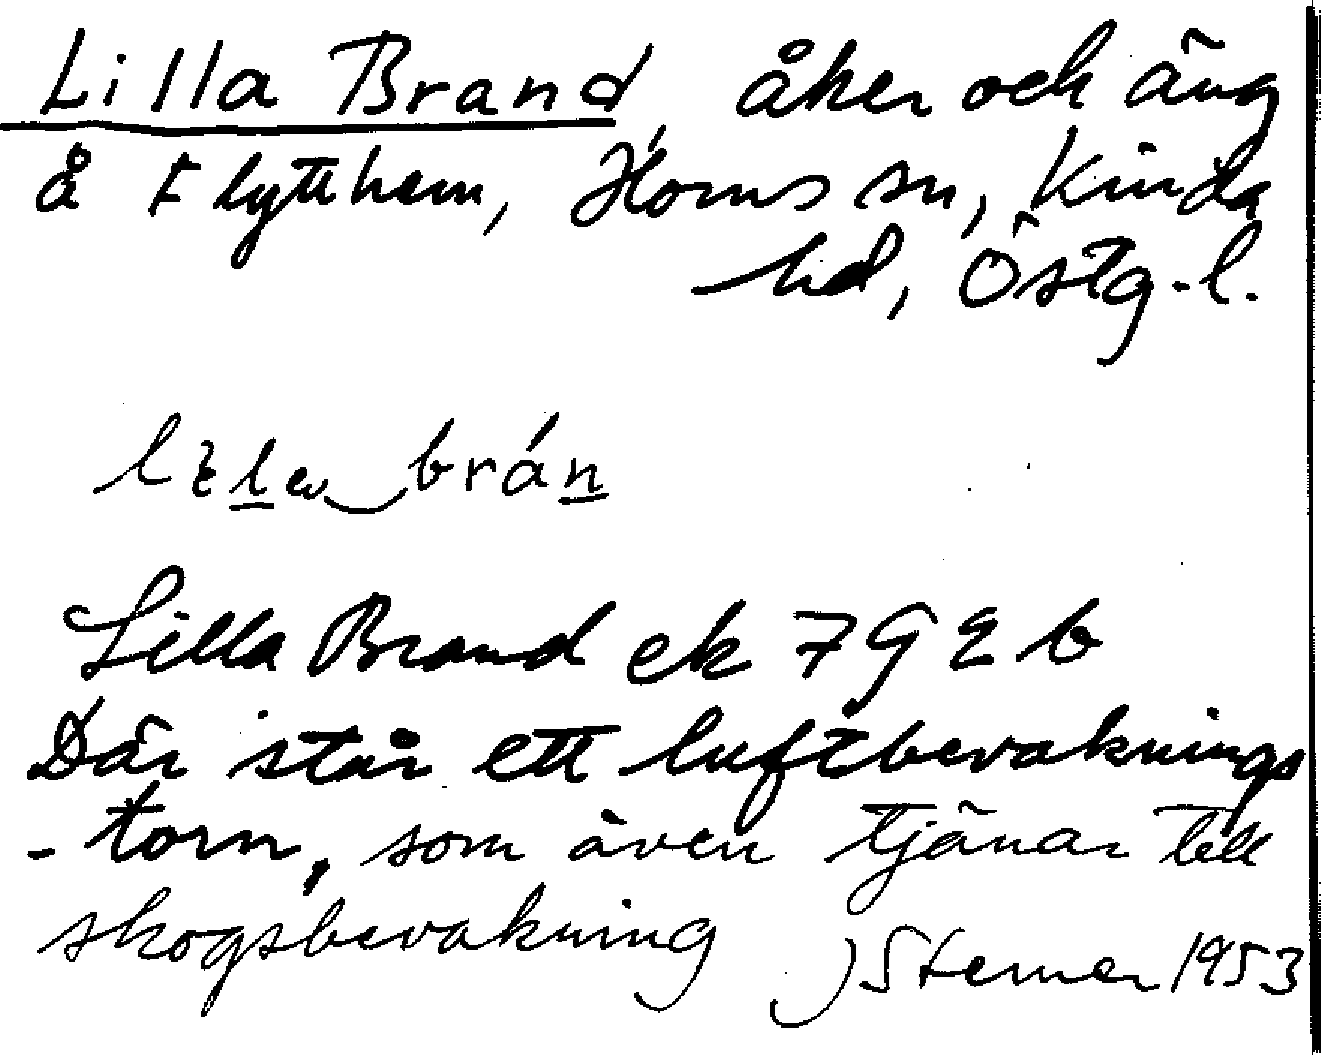 Lilla Brand, åker och äng
å Flytthem, Horns sn, Kinda
hd, Östg-l.
brán
Lilla Brand ek 7 9 E b
Där står ett luftbevaknings
-torn, som även tjänar till
skogsbevakning J Sterner 1953